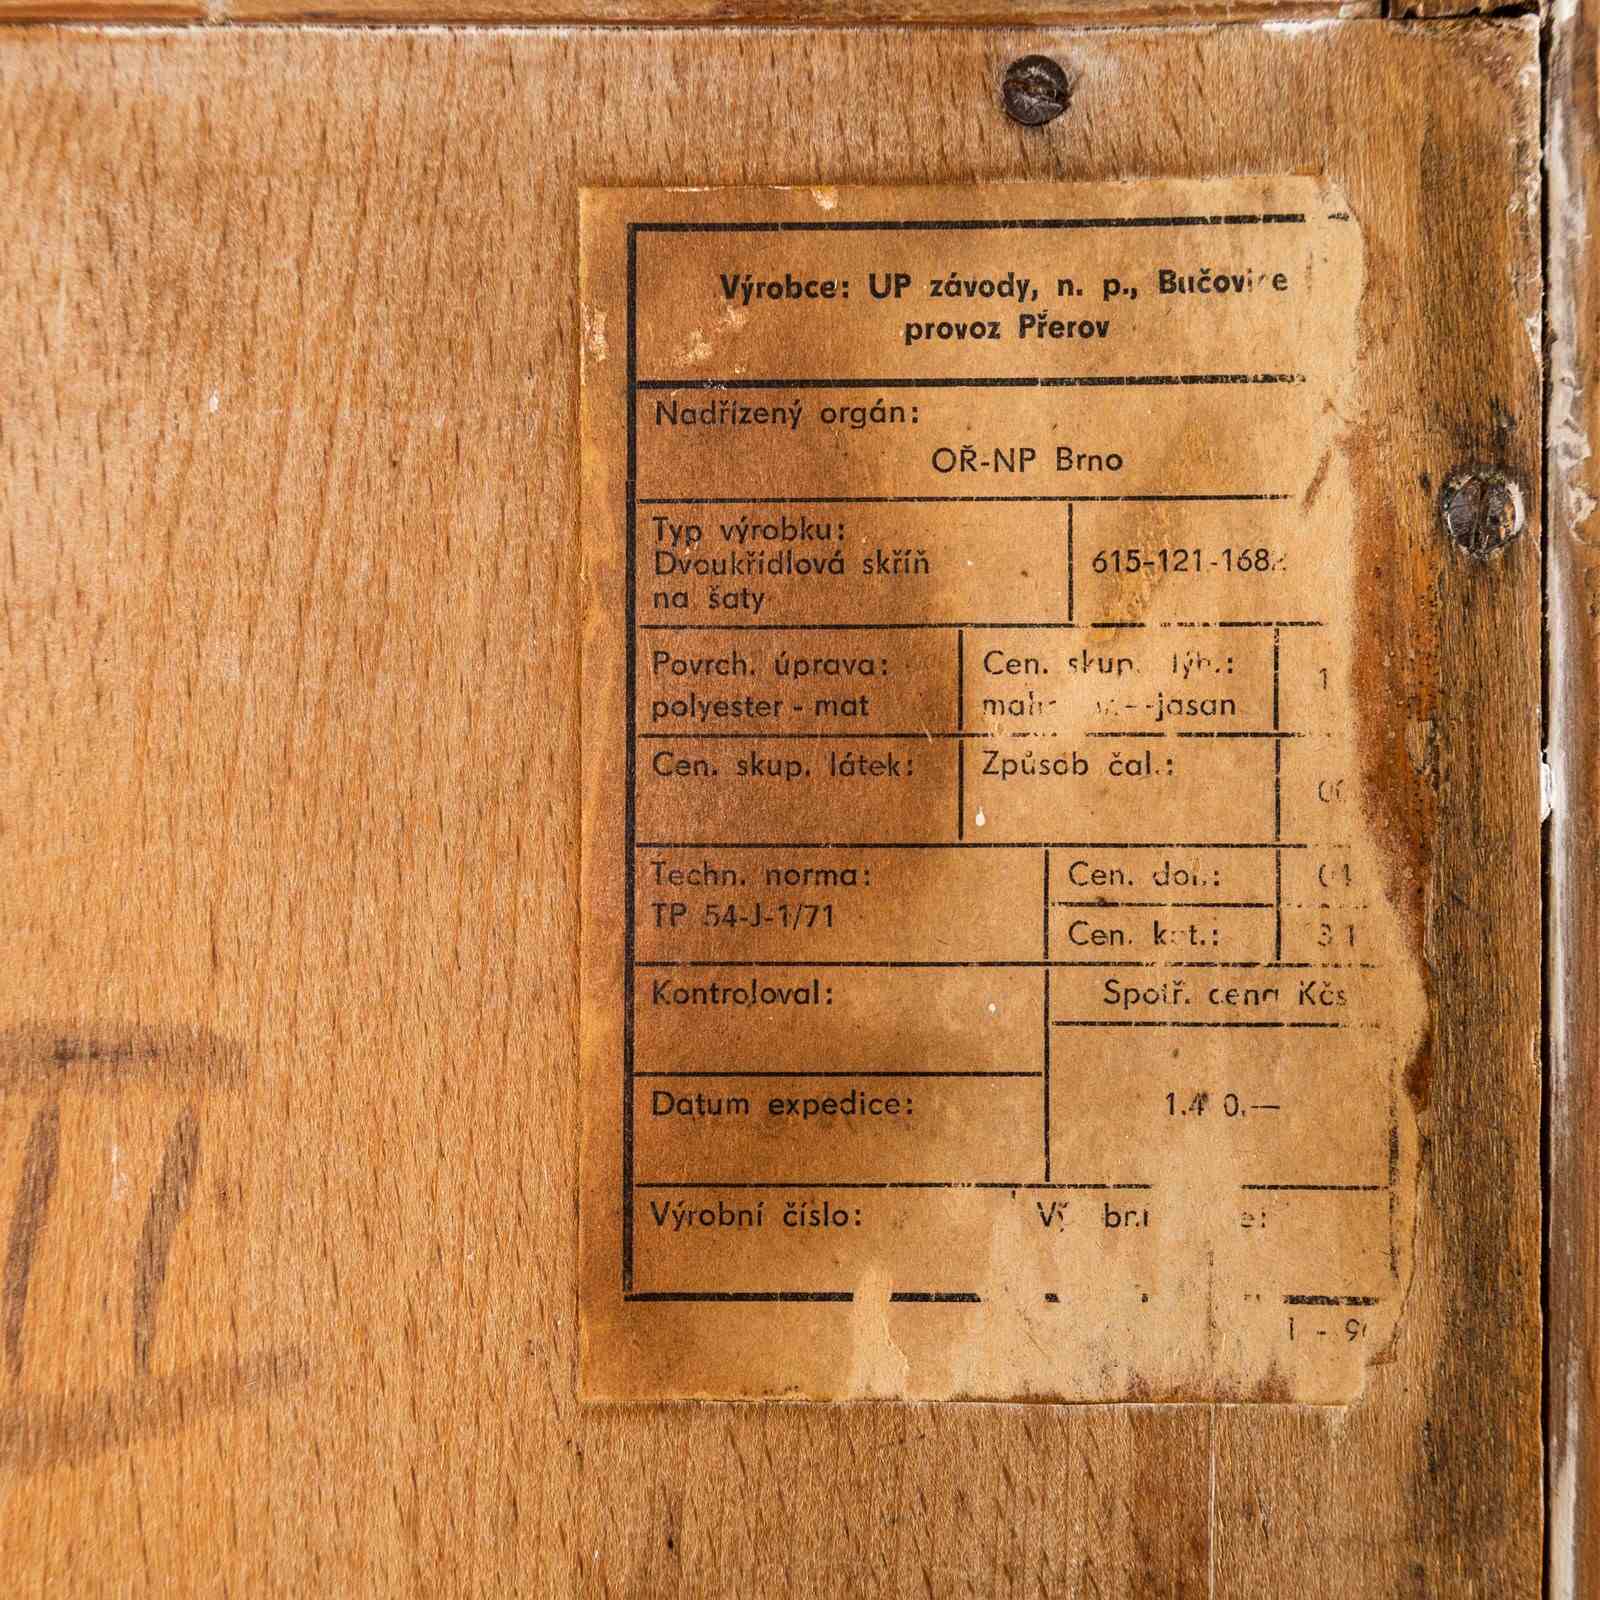 Výrobce: UP závody, n. p., Bučovice
provoz Přerov
Nadřízený orgán:
OŘ-NP Brno
Typ výrobku:
Dvoukřídlová skříň
na šaty
615-121-168
Povrch. úprava:
polyester - mat
Cen. skup. lýh.:
-jasan
1
Cen. skup. látek:
Způsob čal.:
Techn. norma:
TP 54-J-1/71
Cen. dod.:
04
Cen. kat.:
31
Kontroloval:
Spotř. cena Kčs
Datum expedice:
Výrobní číslo: